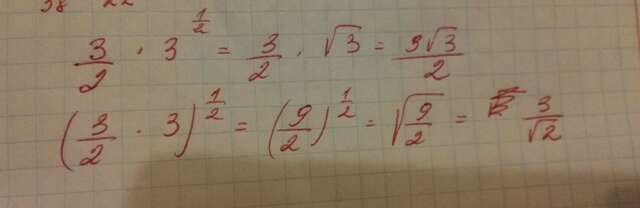 38 22
3/2 · 3^(1/2) = 3/2 · √3 = 3√3/2
(3/2 · 3)^(1/2) = (9/2)^(1/2) = √(9/2) = 3/√2